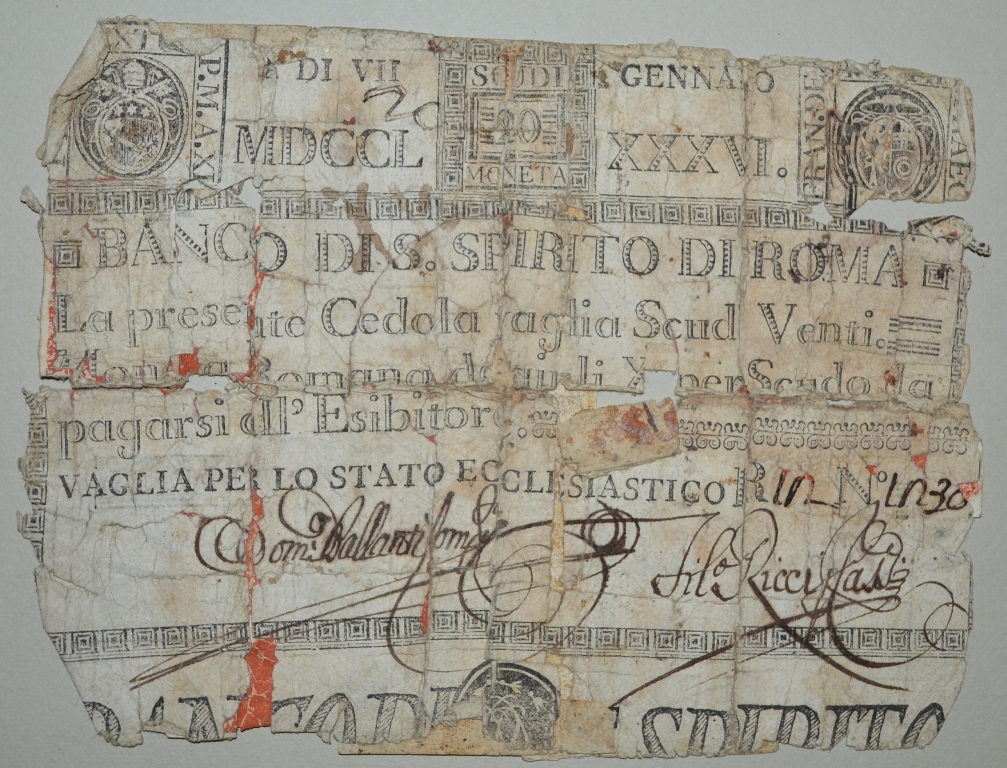 P.M.A.XI
A DI VII
20
SCUDI
20
MONETA
GENNAIO
MDCCL XXXVI.
FRAN.DE
BANCO DI S. SPIRITO DI ROMA
La presente Cedola vaglia Scud Venti.
Moneta Romana per Scudo da
pagarsi all' Esibitore.
VAGLIA PER LO STATO ECCLESIASTICO R N.
Dom.º Ballanti Fil.e Ricci
BANCO DI S SPIRITO